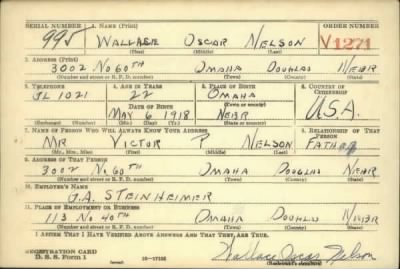 SERIAL NUMBER 1. NAME (Print) ORDER NUMBER
995 WALLACE OSCAR NELSON V1271
(First) (Middle) (Last)
2. ADDRESS (Print)
3002 No 60TH OMAHA DOUGLAS NEBR
(Number and street or R. F. D. number) (Town) (County) (State)
3. TELEPHONE 4. AGE IN YEARS 5. PLACE OF BIRTH 6. COUNTRY OF CITIZENSHIP
GL 1021 22 OMAHA
DATE OF BIRTH (Town or county) U.S.A.
MAY 6 1918 NEBR
(Mo.) (Day) (Yr.) (State or country)
7. NAME OF PERSON WHO WILL ALWAYS KNOW YOUR ADDRESS 8. RELATIONSHIP OF THAT PERSON
MR VICTOR P NELSON FATHER
(Mr., Mrs., Miss) (First) (Middle) (Last)
9. ADDRESS OF THAT PERSON
3002 No 60TH OMAHA DOUGLAS NEBR
(Number and street or R. F. D. number) (Town) (County) (State)
10. EMPLOYER'S NAME
J.A. STEINHEIMER
11. PLACE OF EMPLOYMENT OR BUSINESS
113 No 40TH OMAHA DOUGLAS NEBR
(Number and street or R. F. D. number) (Town) (County) (State)
I AFFIRM THAT I HAVE VERIFIED ABOVE ANSWERS AND THAT THEY ARE TRUE.
REGISTRATION CARD
D. S. S. Form 1 Wallace Oscar Nelson